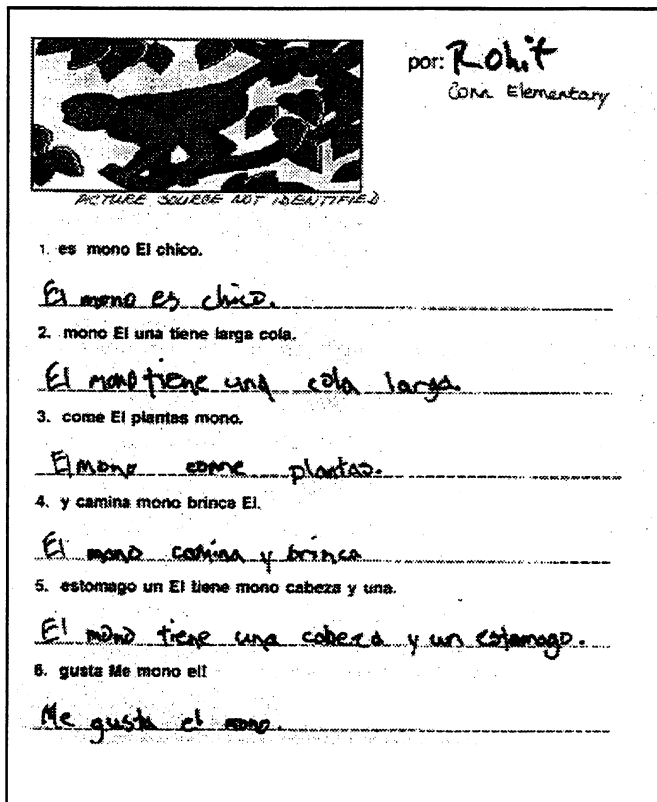 por: Rohit
Corn Elementary
PICTURE SOURCE NOT IDENTIFIED
1. es mono El chico.
El mono es chico.
2. mono El una tiene larga cola.
El mono tiene una cola larga.
3. come El plantas mono.
El mono come plantas.
4. y camina mono brinca El.
El mono camina y brinca
5. estomago un El tiene mono cabeza y una.
El mono tiene una cabeza y un estamago.
6. gusta Me mono el!
Me gusta el mono.